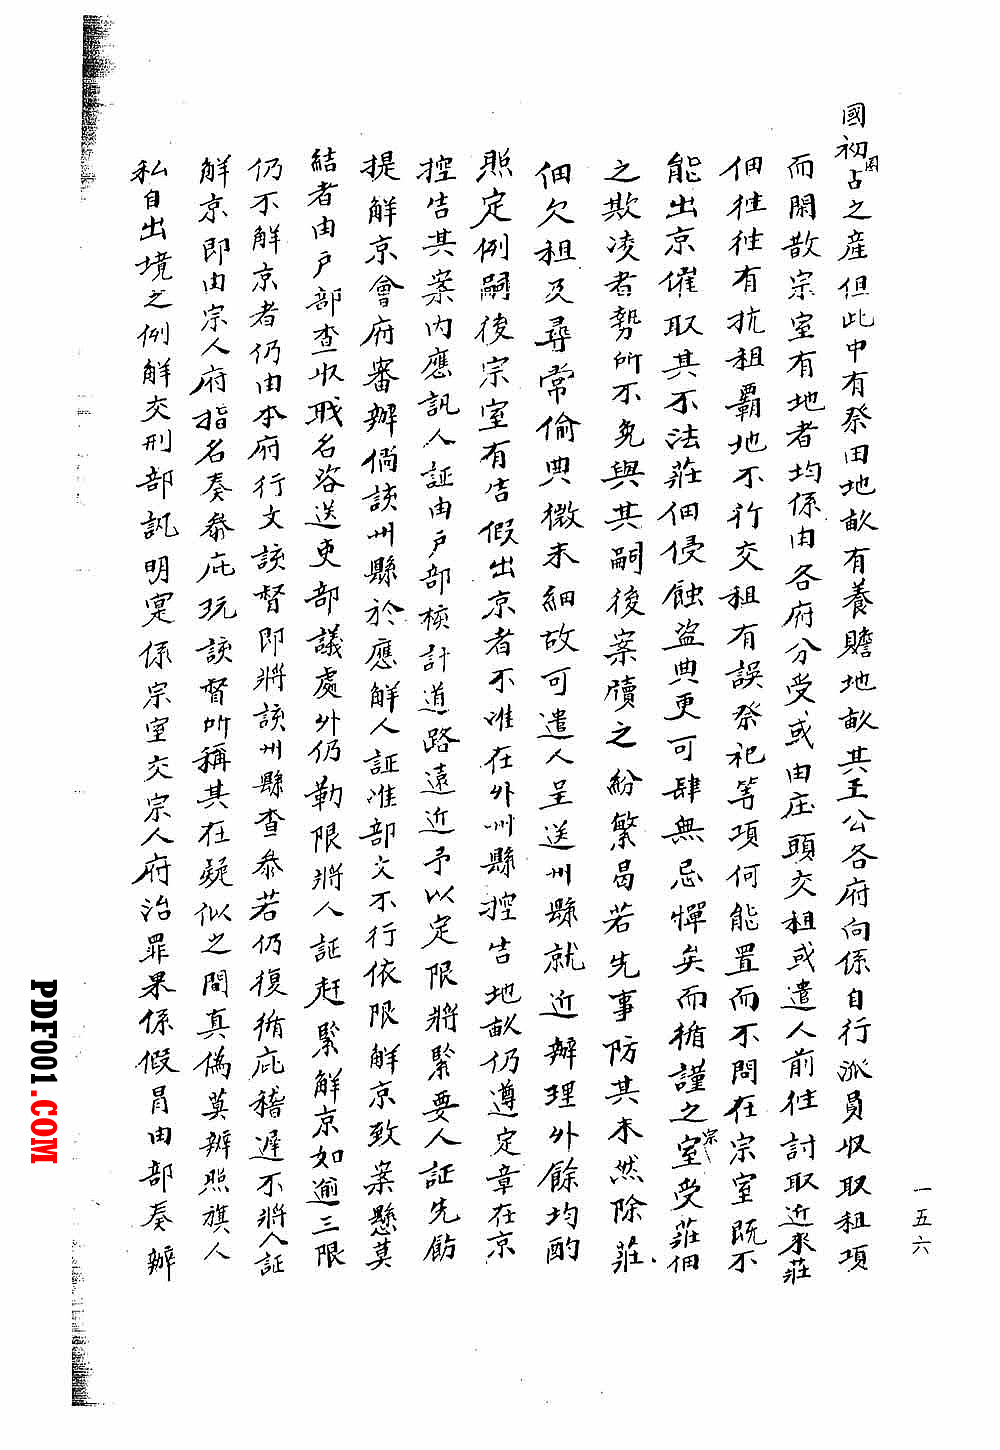 國初圈占之産但此中有祭田地畝有養贍地畝其王公各府向係自行派員収取租項
而閑散宗室有地者均係由各府分受或由庄頭交租或遣人前往討取近來莊
佃往往有抗租覇地不行交租有誤祭祀等項何能置而不問在宗室既不
能出京催取其不法莊佃侵蝕盜典更可肆無忌憚矣而循謹之宗室受莊佃
之欺凌者勢所不免與其嗣後案牘之紛繁曷若先事防其未然除莊
佃欠租及尋常偷典微末細故可遣人呈送州縣就近辦理外餘均酌
照定例嗣後宗室有告假出京者不准在外州縣控告地畝仍遵定章在京
控告其案内應訊人証由戶部核計道路遠近予以定限將緊要人証先飭
提解京會府審辦倘該州縣於應解人証准部文不行依限解京致案懸莫
結者由戶部查取職名咨送吏部議處外仍勒限將人証赶緊解京如逾三限
仍不解京者仍由本府行文該督即將該州縣查叅若仍復循庇稽遲不將人証
解京即由宗人府指名奏叅庇玩該督所稱其在疑似之間真偽莫辨照旗人
私自出境之例解交刑部訊明寔係宗室交宗人府治罪果係假冒由部奏辦
一五六
PDF001.COM